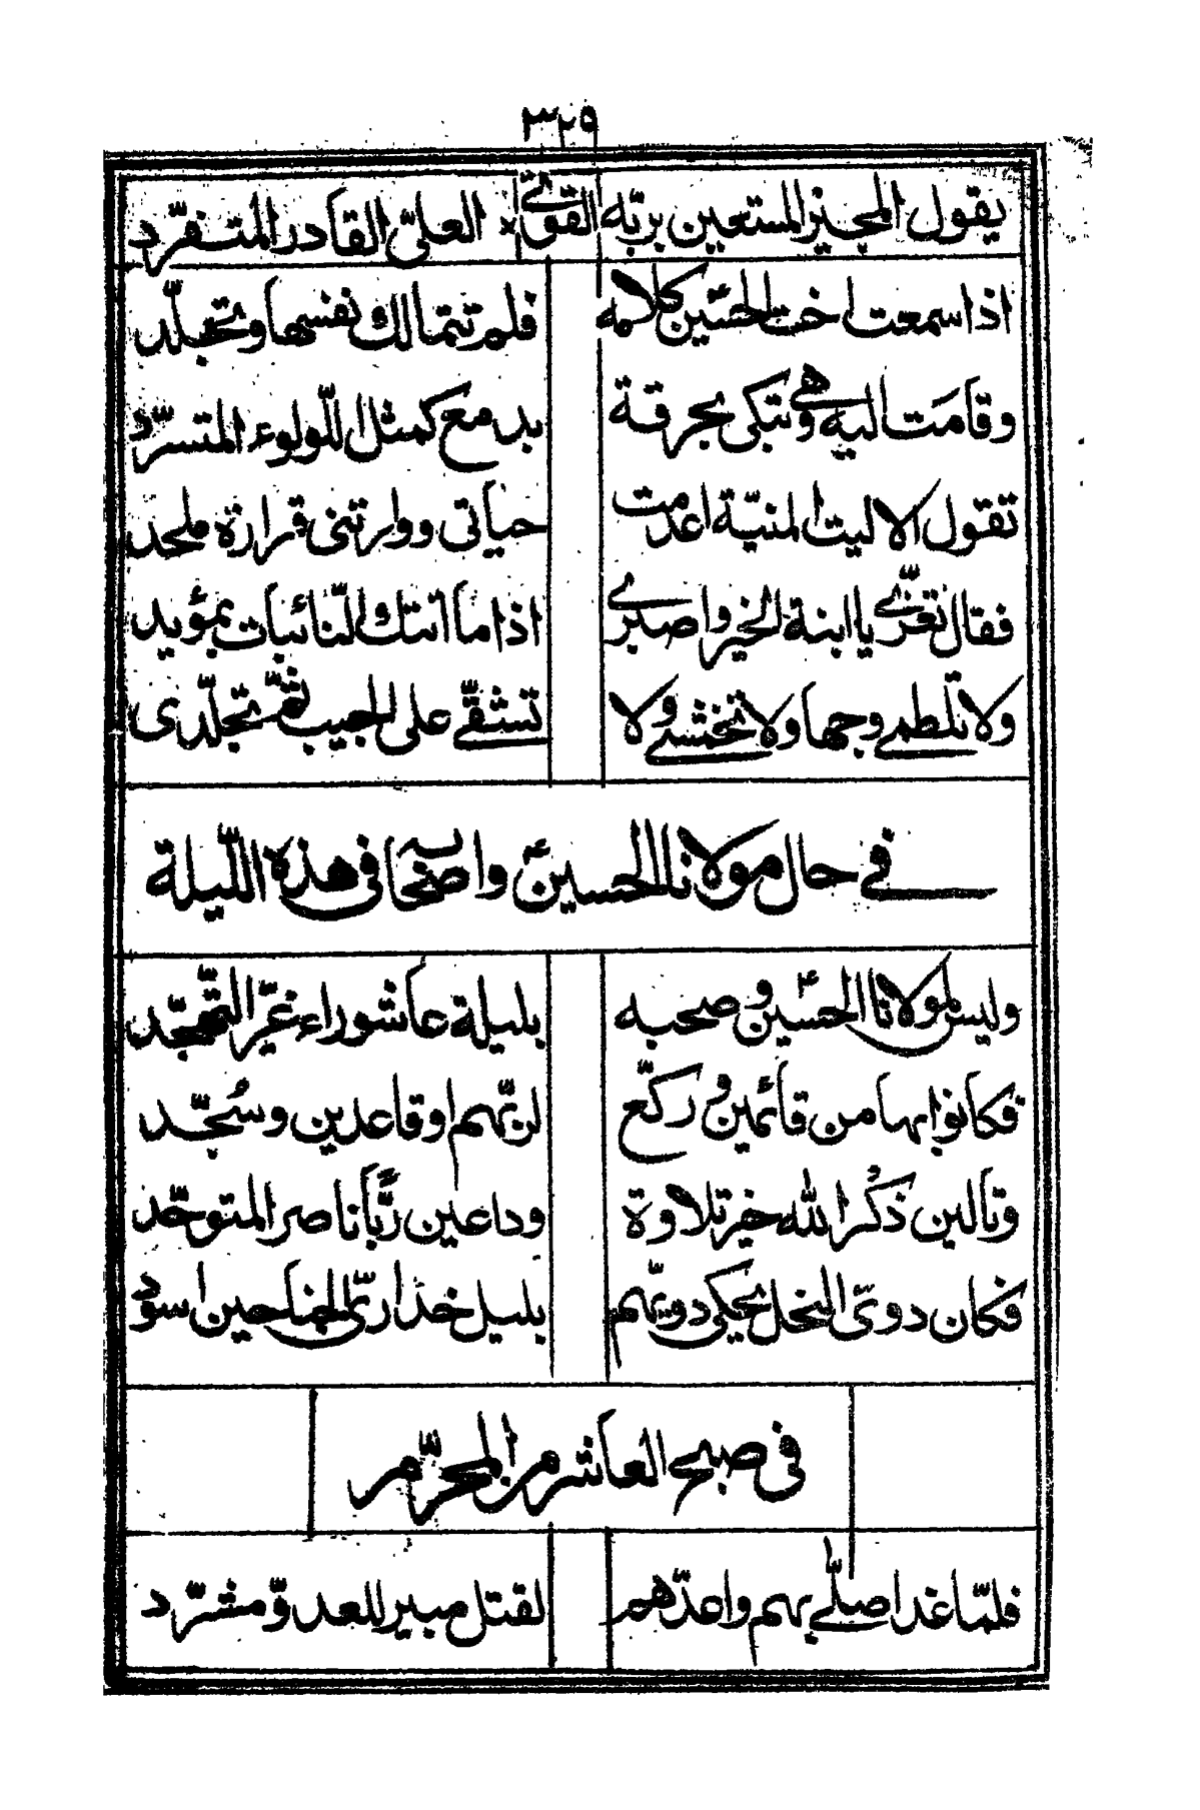 ٣٢٩
يقول المجيز المستعين بربّه القوىّ × العلىّ القادر المتفرّد
اذا سمعت اخت الحسين كلامه فلم تتمالك نفسها وتخبلّد
وقامت اليه وهي تبكى بحرقة بدمع كمثل اللّولوء المتسرّد
تقول الا ليت المنيّة اعدمت حياتى ووارتنى قرارة ملحد
فقال تعزّي يا ابنة الخير واصبري اذا ما اتتك النّائبات بمؤيد
ولا تلطمي وجها ولا تخمشي ولا تشقّي على الجيب ثمّ تجلّدى
في حال مولانا الحسينؑ واصحابه فى هذه اللّيلة
وليس لمولانا الحسينؑ وصحبه بليلة عاشوراء غرّ التّهجّد
فكانوا بها من قائمين وركّع لربّهم او قاعدين وسُجّد
وتالين ذكر الله خير تلاوة وداعين ربًّا ناصر المتوحّد
فكان دوىّ النحل يحكى دويّهم بليل خدارىّ الجناحين اسود
فى صبح العاشر من المحرّم
فلمّا غدا صلّى بهم واعدّهم لقتل مبير للعدوّ ومشرّد